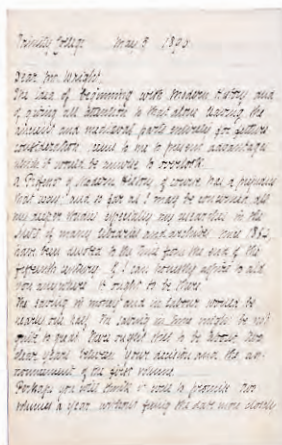 Trinity College May 5 1896
Dear Mr. Wright,
The idea of beginning with Modern History and
of giving all attention to that alone, leaving the
ancient and mediaeval parts entirely for future
consideration, seems to me to present advantages
which it would be unwise to overlook.
A History of Modern History, of course, has a
and so far as I may be concerned, all
my deeper studies, especially my researches in the
of many libraries and archives since
have been devoted to the time from the end of the
fifteenth century. If I can honestly aspire to aid
you anywhere it ought to be there.
The saving in money and in labour would be
nearly one half. The saving in time might be not
quite so great. There ought then to be
clear years between your decision and the
announcement of the first volume.
Perhaps you will think it wise to promise two
volumes a year without fixing the date more closely